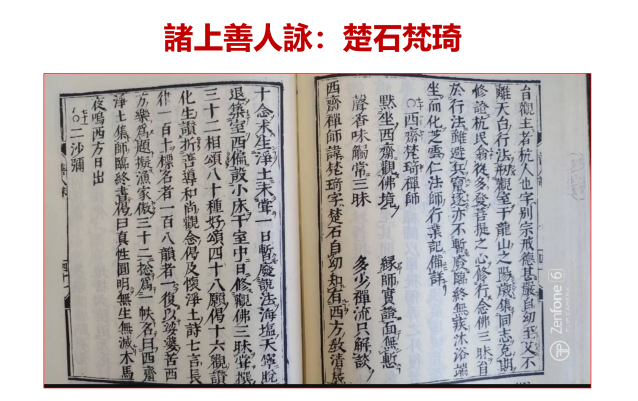 諸上善人詠：楚石梵琦
台觀主者杭人也字別宗戒德甚嚴自幼至父不
離天台行法華觀室于龍山之陽歲集同志克期
修證杭民翁從多發菩提之心修行念佛三昧自
於行法雖避兵竄逐亦不暫廢臨終無疾沐浴端
生而化芝雲仁法師行業記備詳
○西齋梵琦禪師
默坐西齋觀佛境
緣師實證面無慙
聲香味觸常三昧
多少禪流只解談
西齋禪師諱梵琦字楚石自幼知有西方教清晨
十念求生淨土未嘗一日暫廢說法海塩天寧脫
退築室西偏設小床于室中日修觀佛三昧嘗撰
三十二相頌八十種好頌四十八願偈十六觀讚
化生讚折善導和尚觀念偈及懷淨土詩七言長
律一百十標名者一百八韻者一復以娑婆苦西
方樂為題擬漁家傲三十二抝為一帙名曰西齋
淨土集師臨終書偈曰真性圓明無生無滅木馬
夜鳴西方日出
○二沙彌
Zenfone 6